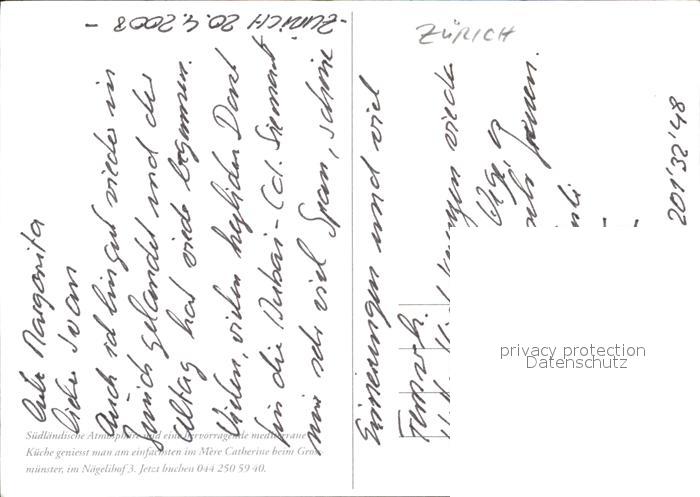 - ZÜRICH 20.4.2008 -
Liebe Margarita
Lieber Ivan
Auch ich bin gut wieder in
Zürich gelandet und der
Alltag hat wieder begonnen.
Vielen, vielen herzlichen Dank
für die Dubai-Cd.
mir sehr viel Spass, schöne
Erinnerungen und viel
Fernweh.
ZÜRICH
201'32'48
Südländische Atmosphäre und eine hervorragende mediterrane
Küche geniesst man am einfachsten im Mère Catherine beim Gross-
münster, im Nägelihof 3. Jetzt buchen 044 250 59 40.
privacy protection
Datenschutz